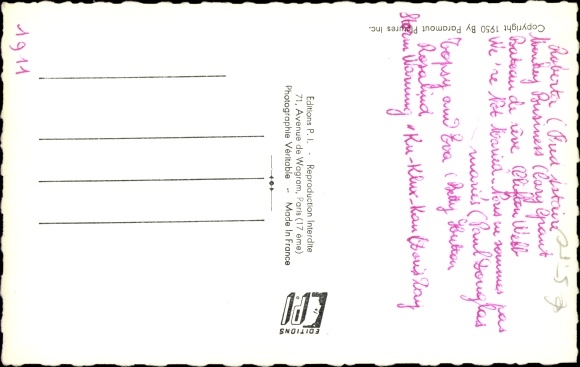 Copyright 1950 By Paramount Pictures Inc.
Roberta (Fred Astaire
Monkey Business (Cary Grant
Bateau de rêve (Clifton Webb
We're Not Married - Nous ne sommes pas
mariés (Paul Douglas
Topsy and Eva (Betty Hutton
Rosalind
Storm Warning "Ku-Klux-Klan (Doris Day
1911
Editions P. I. - Reproduction Interdite
71, Avenue de Wagram, Paris (17 ème)
Photographie Véritable - Made In France
P.I
EDITIONS